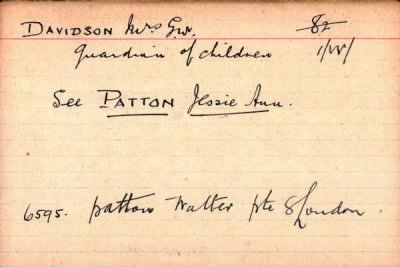 DAVIDSON Mrs G.W. 82
Guardian of children
See PATTON Jessie Ann.
6595. Patton Walter Pte 8 London.